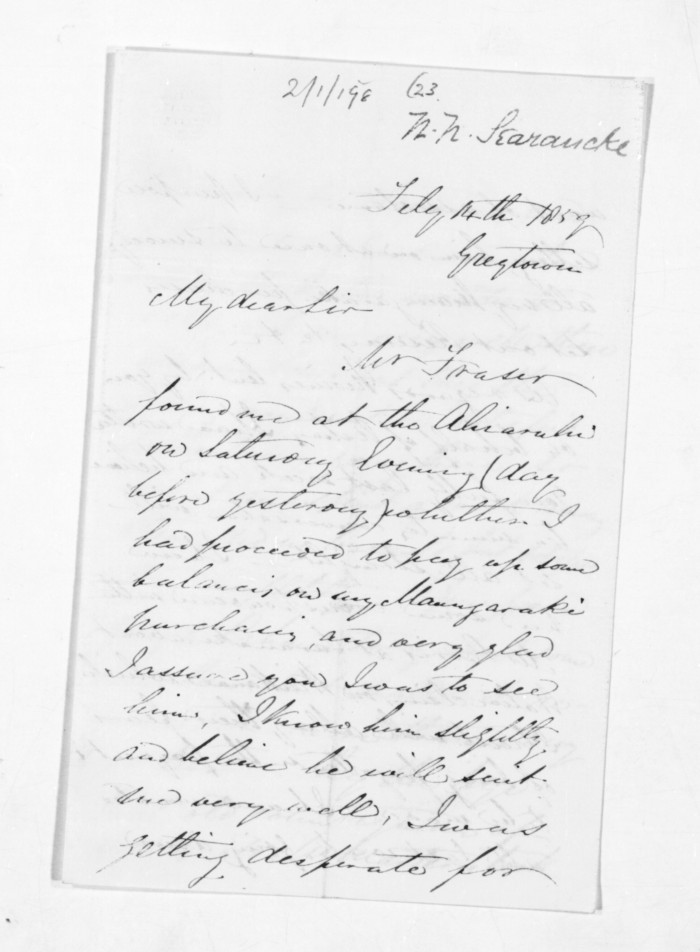 2/1/198 (23.
N. N. Searancke
Feby 14th 1859
Greytown
My dear Sir
Mr Fraser
found me at the Ahiaruhe
on Saturday Evening (day
before yesterday) whither I
had proceeded to pay up some
balances on my Maungaraki
purchases, and very glad
I assure you I was to see
him, I know him slightly,
and believe he will suit
me very well, I was
getting desperate for